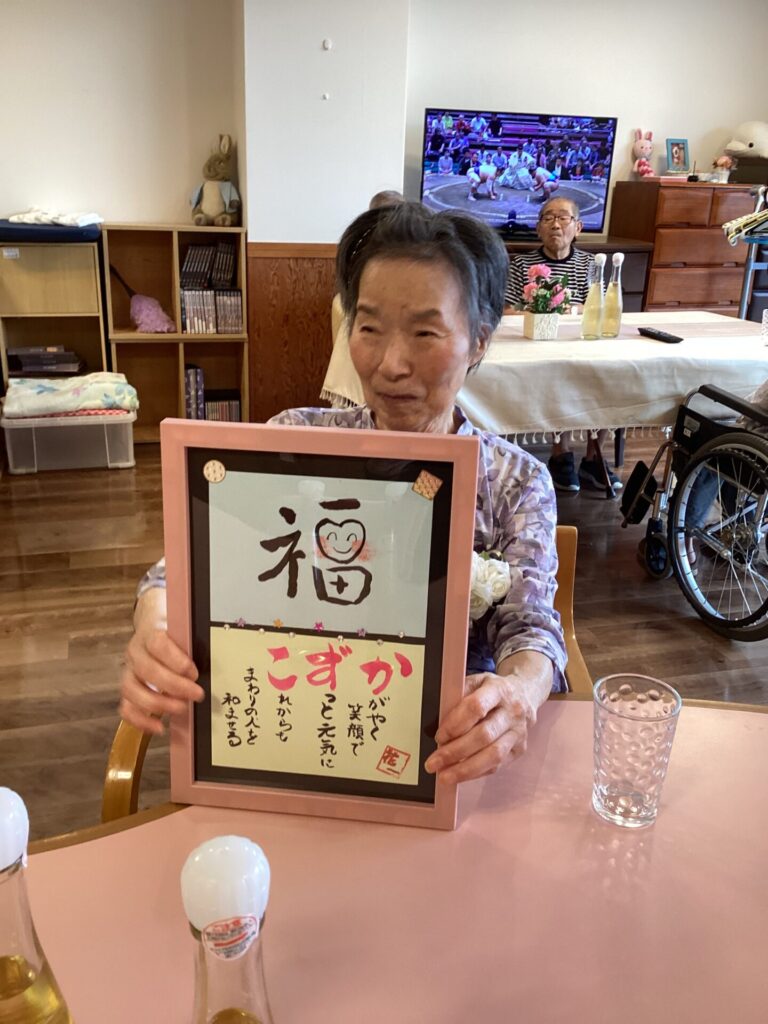 福
かがやく
笑顔で
ずっと元気に
これからも
まわりの人を
和ませる